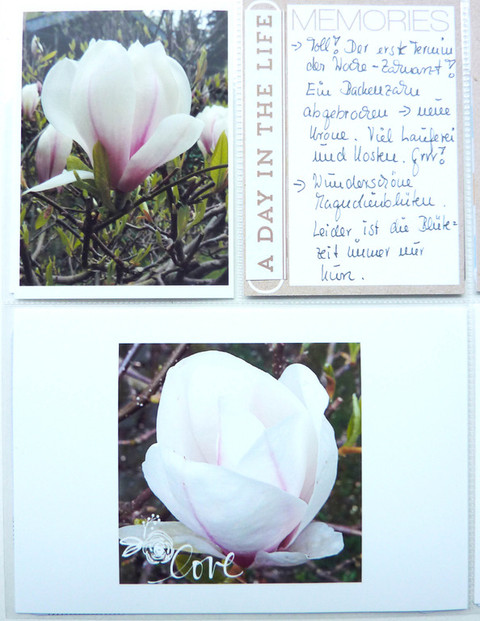 A DAY IN THE LIFE
MEMORIES
→ Toll? Der erste Termin
der Woche - Zahnarzt?
Ein Backenzahn
abgebrochen → neue
Krone. Viel Lauferei
und Kosten. Grrr?
→ Wunderschöne
Magnolienblüten.
Leider ist die Blüte-
zeit immer nur
kurz.
love